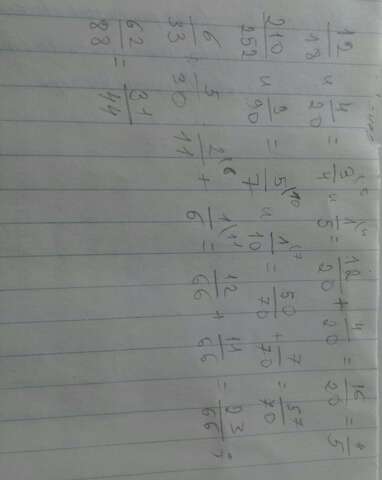 12/18 и 4/20 = 3/4(5 и 1/5(4 = 12/20 + 4/20 = 16/20 = 4/5
210/252 и 2/90 = 5/7(10 и 1/10(7 = 50/70 + 7/70 = 57/70
6/33 ; 5/30 2/11(6 + 1/6(11 = 12/66 + 11/66 = 23/66 ;
62/88 = 31/44